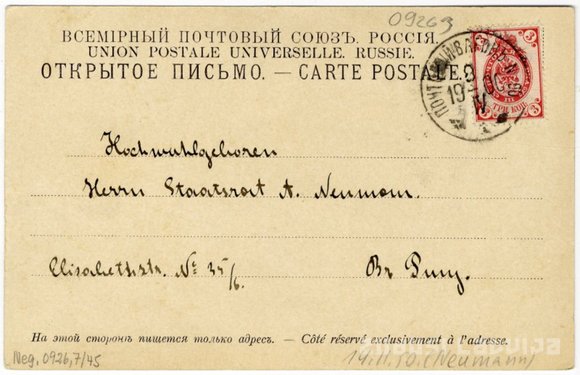 09263
ВСЕМІРНЫЙ ПОЧТОВЫЙ СОЮЗЪ. РОССІЯ.
UNION POSTALE UNIVERSELLE. RUSSIE.
ОТКРЫТОЕ ПИСЬМО. — CARTE POSTALE.
3 3
ТРИ КОП.
Hochwohlgeboren
Herrn Staatsrat A. Neumann.
Elisabethstr. № 35/6.
На этой сторонѣ пишется только адресъ. — Côté réservé exclusivement à l'adresse.
Neg. 0926,7/45
(Neumann)